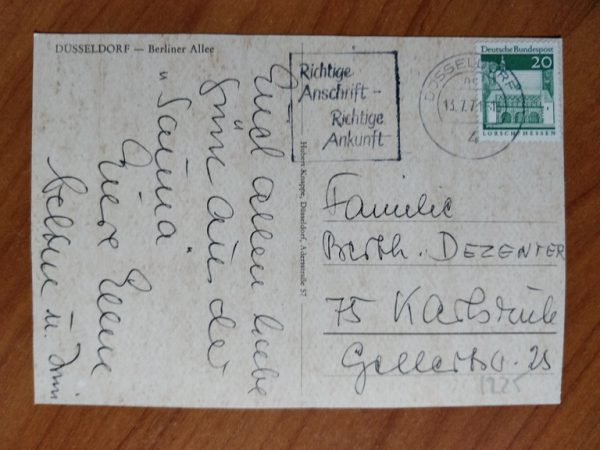 DÜSSELDORF — Berliner Allee
Euch allen liebe
Grüße aus der
"Sauna"
Eure Ellen
u.
Hubert Knappe, Düsseldorf, Ackerstraße 57
Richtige
Anschrift –
Richtige
Ankunft
DÜSSELDORF
13.7.71
4
Deutsche Bundespost
20
LORSCH/HESSEN
Familie
Berth. DEZENTER
75 Karlsruhe
Gellertstr. 23
1225